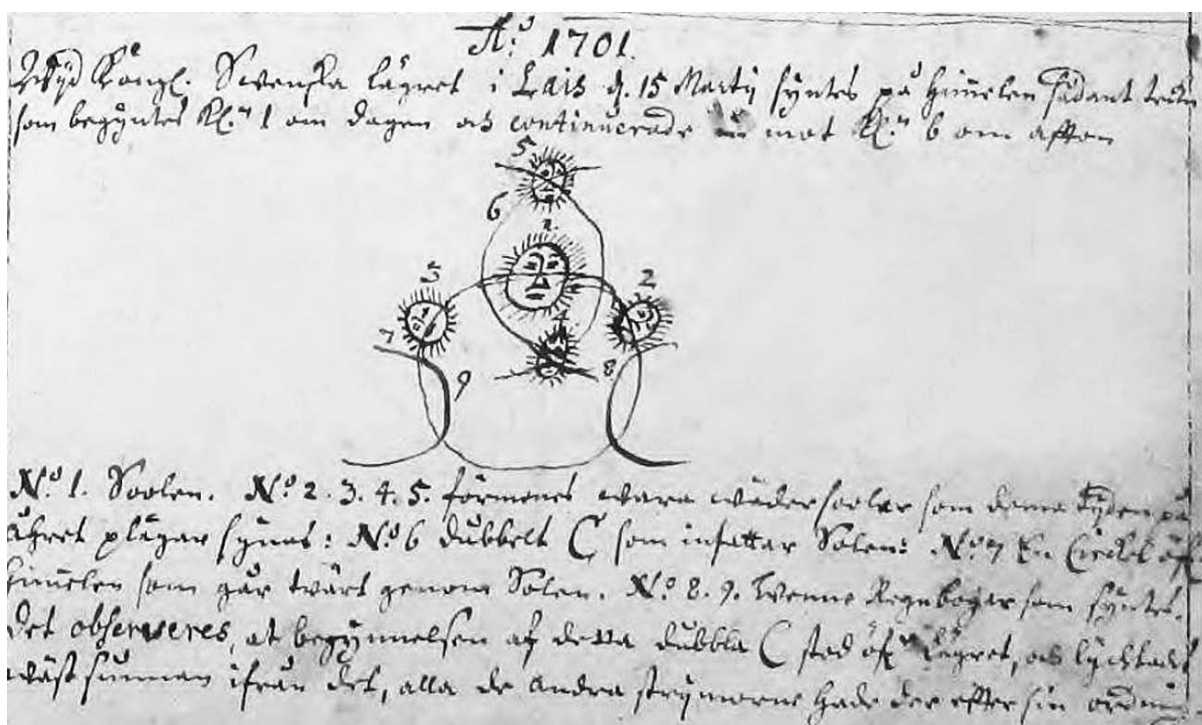 A:o 1701.
Wyd Kongl. Swenska lägret i Lais d. 15 Martij syntes på himelen sådant
som begyntes Kl.n 1 om dagen och continuerade mot Kl.n 6 om afton
5
6
1.
3
2
4
7
9
8
N:o 1. Soolen. N:o 2. 3. 4. 5. förmenes wara wädersoolar som denne tyden på
åhret plägar synas: N:o 6 dubbelt C som infattar Solen: N:o 7 En Circkel
himelen som går twärt genom Solen. N:o 8. 9. twenne Regnbogar som syntes.
Det observeres, at begynnelsen af detta dubbla C stod öf:r lägret, och lychtades
wäst sunnan ifrån det, alla de andra strymorne hade der efter sin